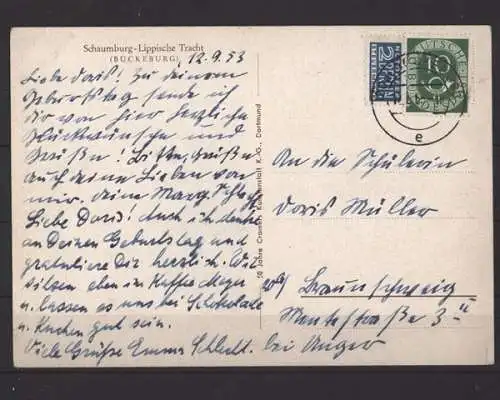 Schaumburg-Lippische Tracht
(BÜCKEBURG)
12.9.53
Liebe Doris! Zu deinem
Geburtstag sende ich
dir von hier herzliche
Glückwünsche und
Grüße! Bitte, grüße
auch deine Lieben von
mir. deine Marg.
Liebe Doris! Auch ich denke
an Deinen Geburtstag und
gratuliere Dir herzlich. Wir
sitzen eben im Kaffee Meyer
u. lassen es uns bei Schokolade
u. Kuchen gut sein.
Viele Grüße Emma Schlecht.
50 Jahre Cramers Kunstanstalt K.-G., Dortmund
NOTOPFER
2 BERLIN
DEUTSCHE BUNDESPOST
10
e
An die Schülerin
Doris Müller
Braunschweig
3 II
bei Unger